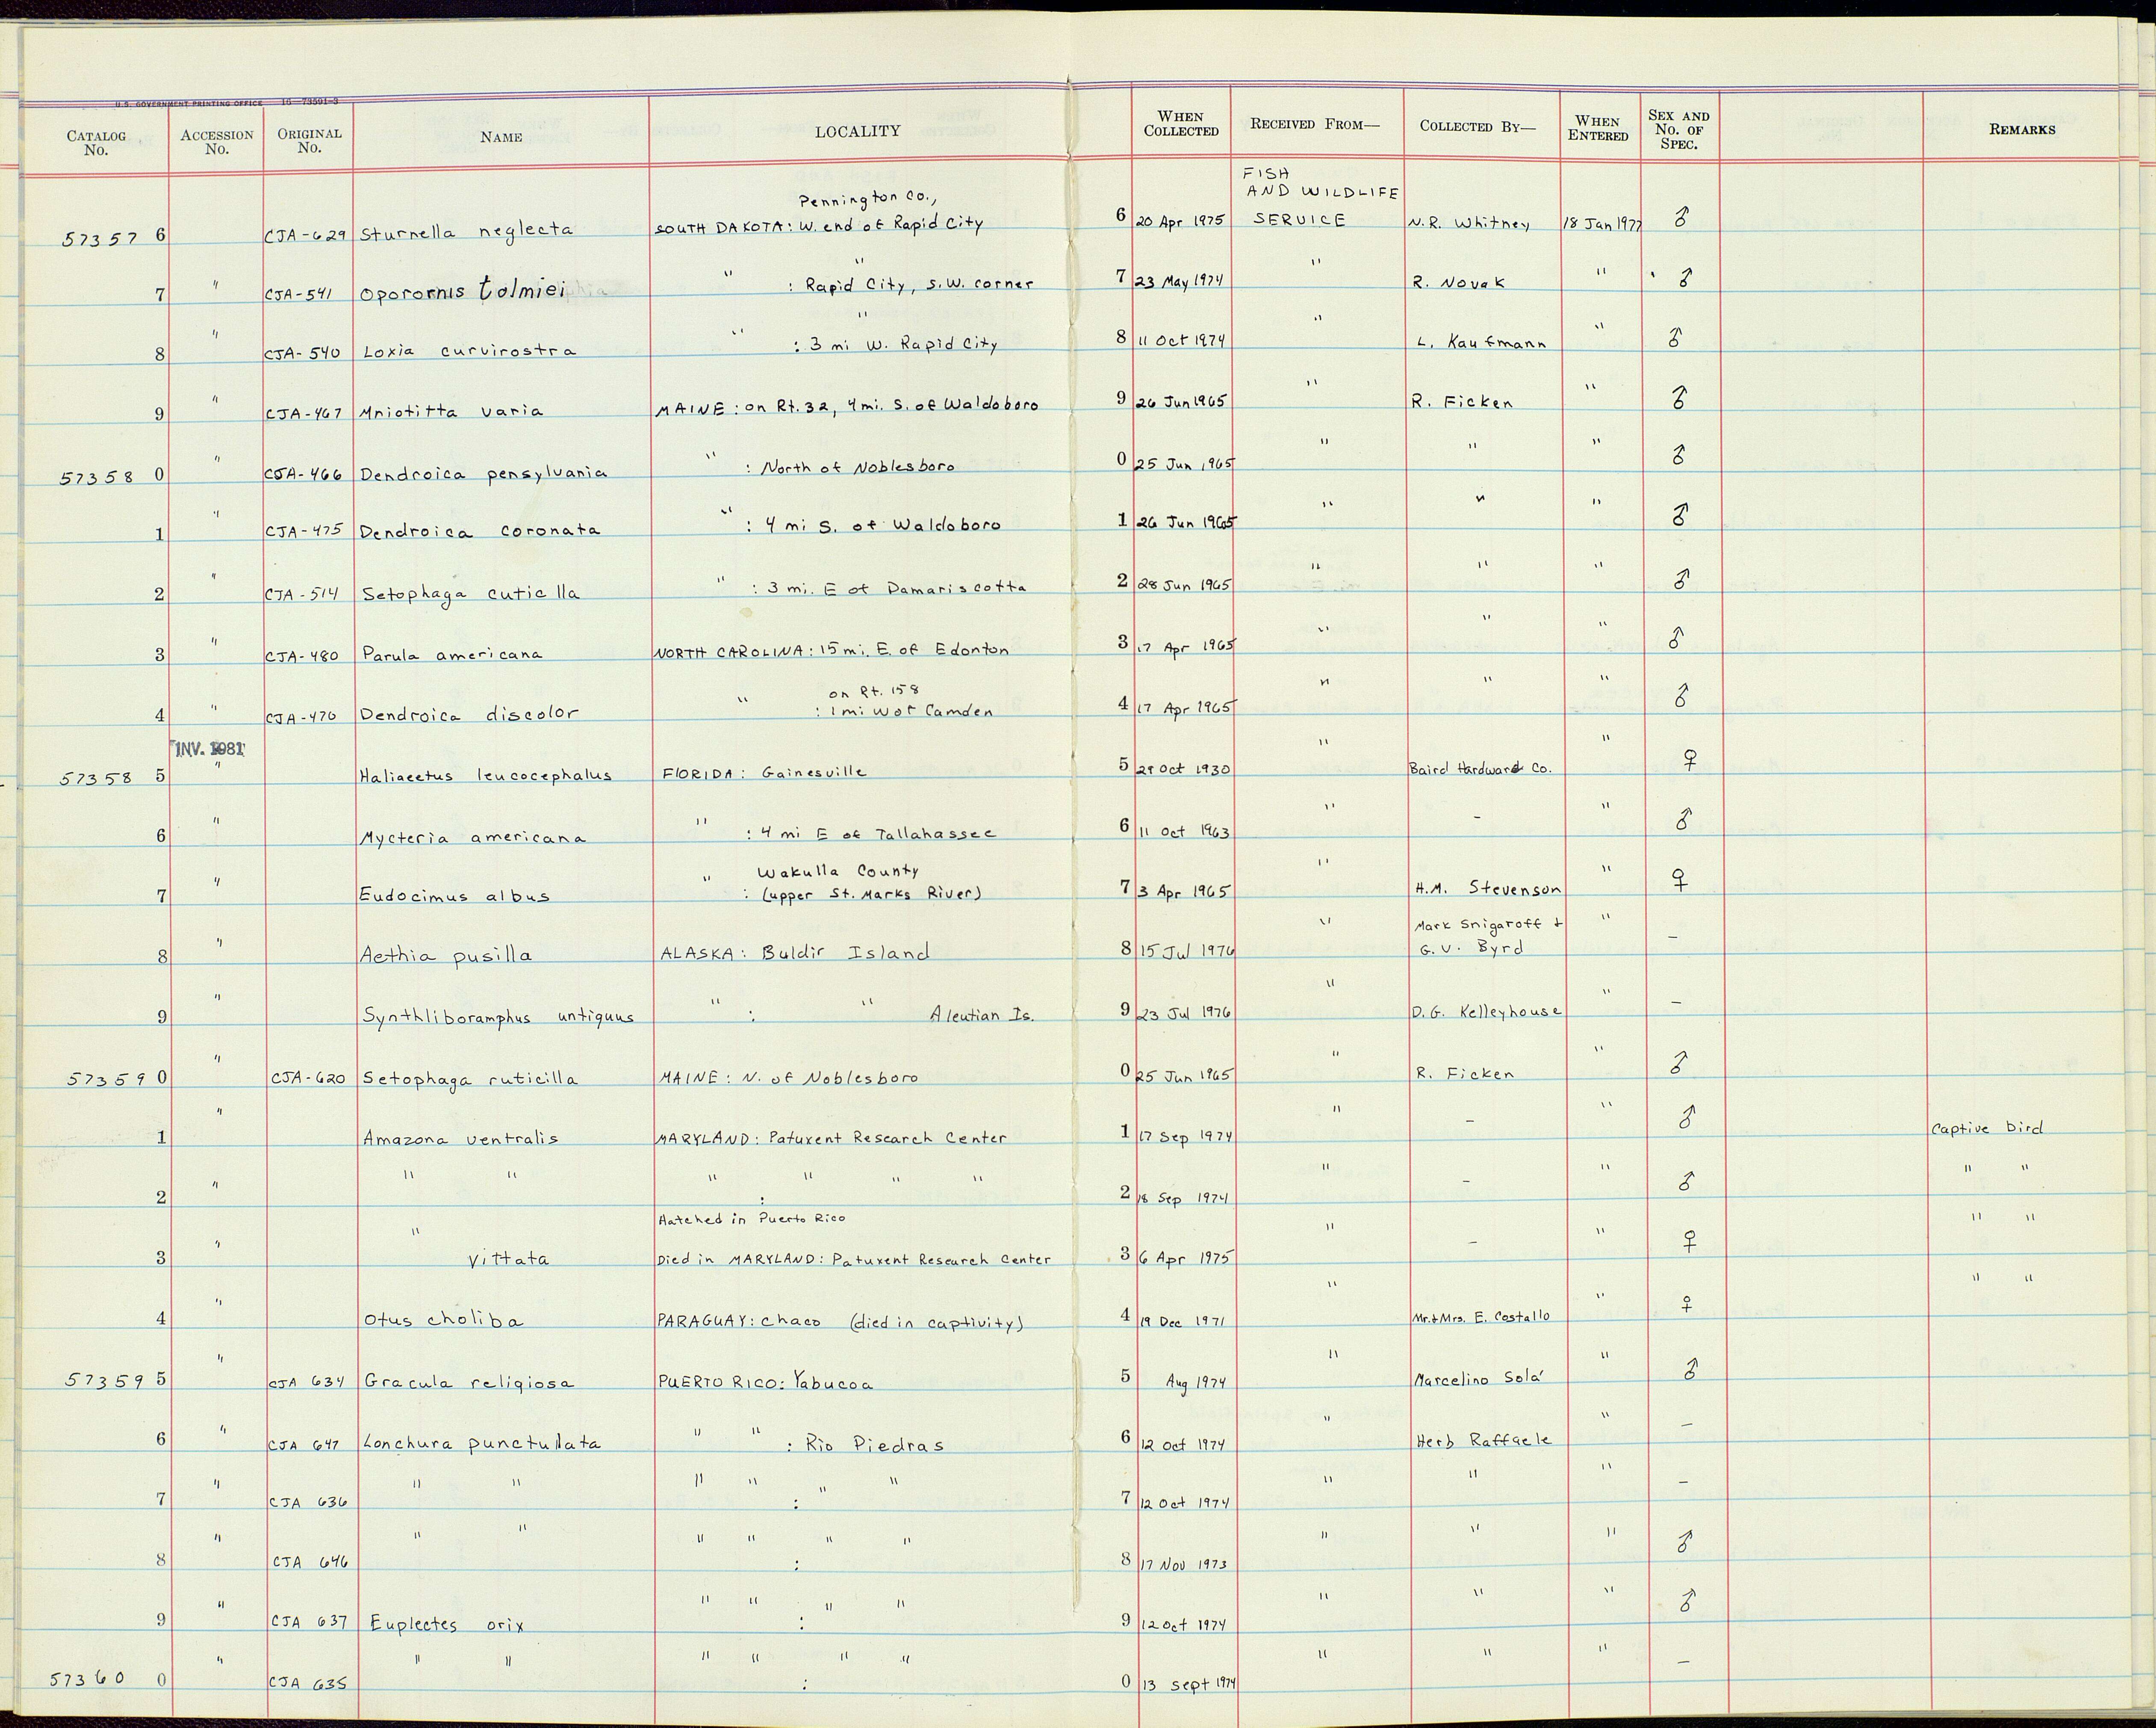 U.S. GOVERNMENT PRINTING OFFICE 16—73591-3
CATALOG No. ACCESSION No. ORIGINAL No. NAME LOCALITY WHEN COLLECTED RECEIVED FROM— COLLECTED BY— WHEN ENTERED SEX AND No. OF SPEC. REMARKS
Pennington Co., FISH AND WILDLIFE
57357 6 CJA-629 Sturnella neglecta SOUTH DAKOTA: W. end of Rapid City 6 20 Apr 1975 SERVICE N.R. Whitney 18 Jan 1977 ♂
7 " CJA-541 Oporornis tolmiei " " : Rapid City, S.W. corner 7 23 May 1974 " R. Novak " ♂
8 " CJA-540 Loxia curvirostra " " : 3 mi W. Rapid City 8 11 Oct 1974 " L. Kaufmann " ♂
9 " CJA-467 Mniotitta varia MAINE: on Rt. 32, 4mi. S. of Waldoboro 9 26 Jun 1965 " R. Ficken " ♂
57358 0 " CJA-466 Dendroica pensylvania " : North of Noblesboro 0 25 Jun 1965 " " " ♂
1 " CJA-475 Dendroica coronata " : 4 mi S. of Waldoboro 1 26 Jun 1965 " " " ♂
2 " CJA-514 Setophaga cuticilla " : 3 mi. E of Damariscotta 2 28 Jun 1965 " " " ♂
3 " CJA-480 Parula americana NORTH CAROLINA: 15 mi. E. of Edonton 3 17 Apr 1965 " " " ♂
on Rt. 158
4 " CJA-470 Dendroica discolor " : 1 mi W of Camden 4 17 Apr 1965 " " " ♂
INV. 1981
57358 5 " Haliaeetus leucocephalus FlORIDA: Gainesville 5 29 Oct 1930 " Baird Hardward Co. " ♀
6 " Mycteria americana " : 4 mi E of Tallahassee 6 11 Oct 1963 " - " ♂
Wakulla County
7 " Eudocimus albus " : (upper St. Marks River) 7 3 Apr 1965 " H.M. Stevenson " ♀
Mark Snigaroff +
8 " Aethia pusilla ALASKA: Buldir Island 8 15 Jul 1976 " G.V. Byrd " -
9 " Synthliboramphus antiquus " : " Aleutian Is. 9 23 Jul 1976 " D.G. Kelleyhouse " -
57359 0 " CJA-620 Setophaga ruticilla MAINE: N. of Noblesboro 0 25 Jun 1965 " R. Ficken " ♂
1 " Amazona ventralis MARYLAND: Patuxent Research Center 1 17 Sep 1974 " - " ♂ Captive bird
2 " " " " : " " " 2 18 Sep 1974 " - " ♂ " "
Hatched in Puerto Rico
3 " " vittata Died in MARYLAND: Patuxent Research Center 3 6 Apr 1975 " - " ♀ " "
4 " Otus choliba PARAGUAY: Chaco (died in captivity) 4 19 Dec 1971 " Mr.+Mrs. E. Costallo " ♀ " "
57359 5 " CJA 634 Gracula religiosa PUERTO RICO: Yabucoa 5 Aug 1974 " Marcelino Solá " ♂
6 " CJA 647 Lonchura punctulata " " : Rio Piedras 6 12 Oct 1974 " Herb Raffaele " -
7 " CJA 636 " " " " : " " 7 12 Oct 1974 " " " -
8 " CJA 646 " " " " : " " 8 17 Nov 1973 " " " ♂
9 " CJA 637 Euplectes orix " " : " " 9 12 Oct 1974 " " " ♂
57360 0 " CJA 635 " " " " : " " 0 13 Sept 1974 " " " -